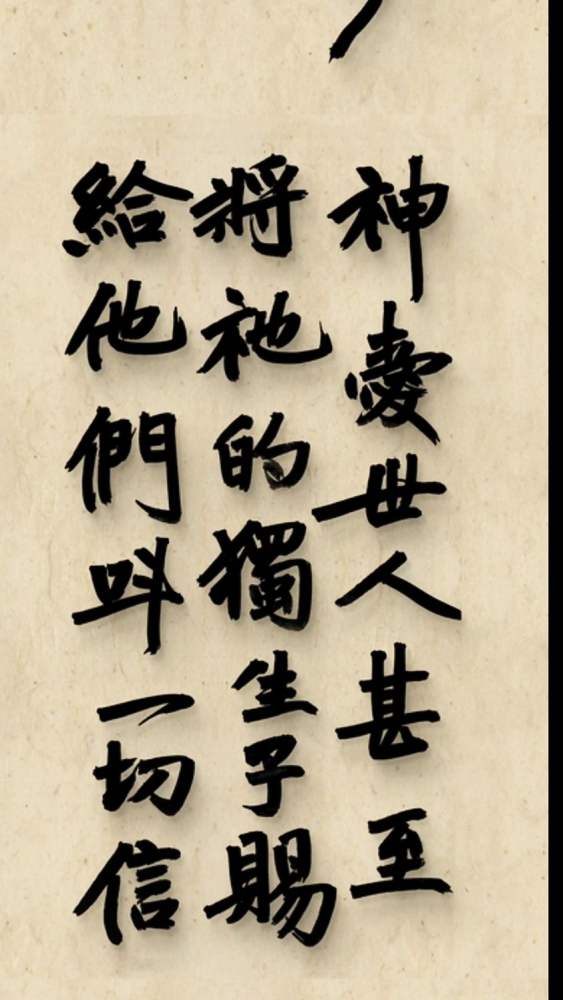 神愛世人甚至
將祂的獨生子賜
給他們呌一切信